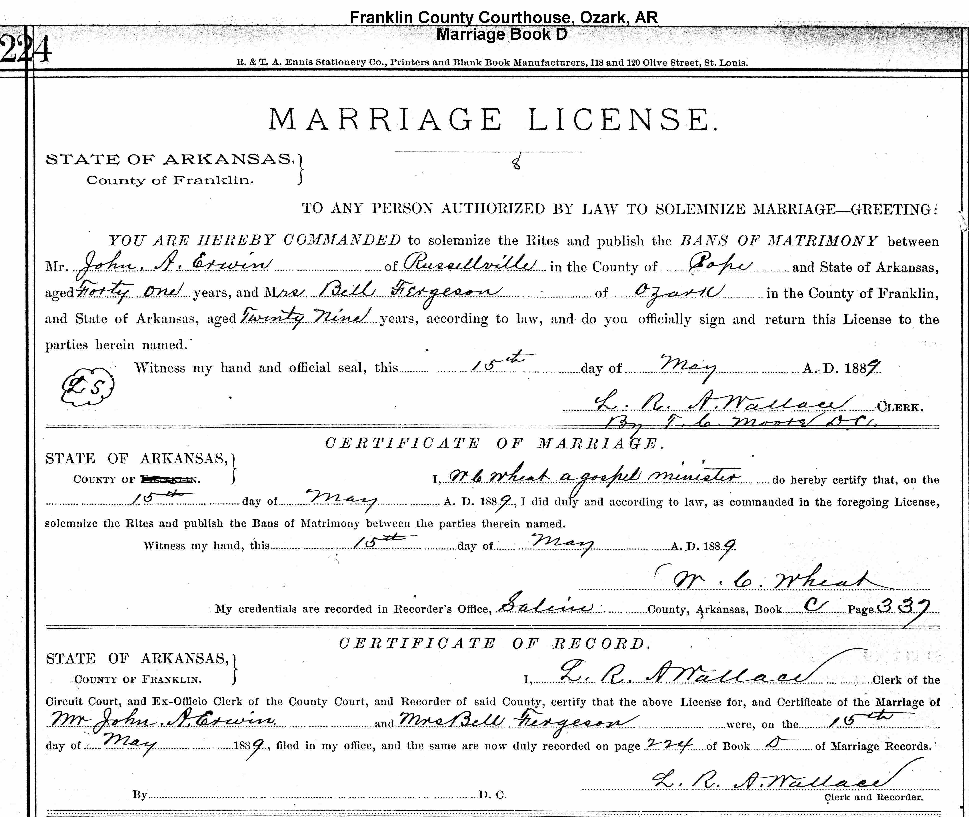 Franklin County Courthouse, Ozark, AR
Marriage Book D
224
R. & T. A. Ennis Stationery Co., Printers and Blank Book Manufacturers, 118 and 120 Olive Street, St. Louis.
MARRIAGE LICENSE.
STATE OF ARKANSAS, }
County of Franklin.
8
TO ANY PERSON AUTHORIZED BY LAW TO SOLEMNIZE MARRIAGE—GREETING:
YOU ARE HEREBY COMMANDED to solemnize the Rites and publish the BANS OF MATRIMONY between
Mr. John. A. Erwin of Russellville in the County of Pope and State of Arkansas,
aged Forty One years, and Mrs Bell Fergeson of Ozark in the County of Franklin,
and State of Arkansas, aged Twenty Nine years, according to law, and do you officially sign and return this License to the
parties herein named.
Witness my hand and official seal, this 15th day of May A. D. 1889
LS
L. R. A. Wallace CLERK.
By T. C. Moore D.C.
CERTIFICATE OF MARRIAGE.
STATE OF ARKANSAS, }
COUNTY OF FRANKLIN.
I, W C Wheat a gospel minister do hereby certify that, on the
15th day of May A. D. 1889, I did duly and according to law, as commanded in the foregoing License,
solemnize the Rites and publish the Bans of Matrimony between the parties therein named.
Witness my hand, this 15th day of May A. D. 1889
W. C. Wheat
My credentials are recorded in Recorder's Office, Saline County, Arkansas, Book C Page 337
CERTIFICATE OF RECORD.
STATE OF ARKANSAS, }
COUNTY OF FRANKLIN.
I, L. R. A Wallace Clerk of the
Circuit Court, and Ex-Officio Clerk of the County Court, and Recorder of said County, certify that the above License for, and Certificate of the Marriage of
Mr John. A. Erwin and Mrs Bell Fergeson were, on the 15th
day of May 1889, filed in my office, and the same are now duly recorded on page 224 of Book D of Marriage Records.
L. R. A. Wallace
By D. C.
Clerk and Recorder.